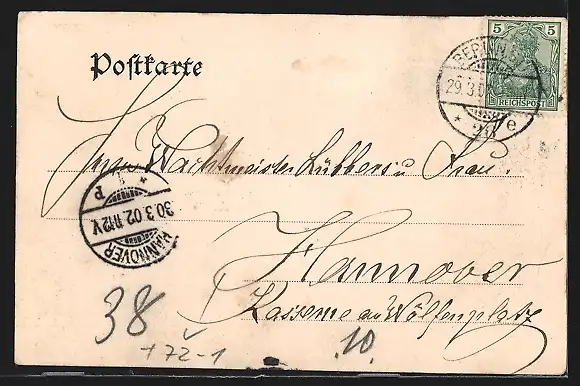 Postkarte
5 5
REICHSPOST
BERLIN
29.3.0
* e
Herrn Wachtmeister Lübbers u Frau.
HANNOVER
30.3.02.11-12V.
* P
Hannover
Kaserne am Welfenplatz
38
+72-1
10.